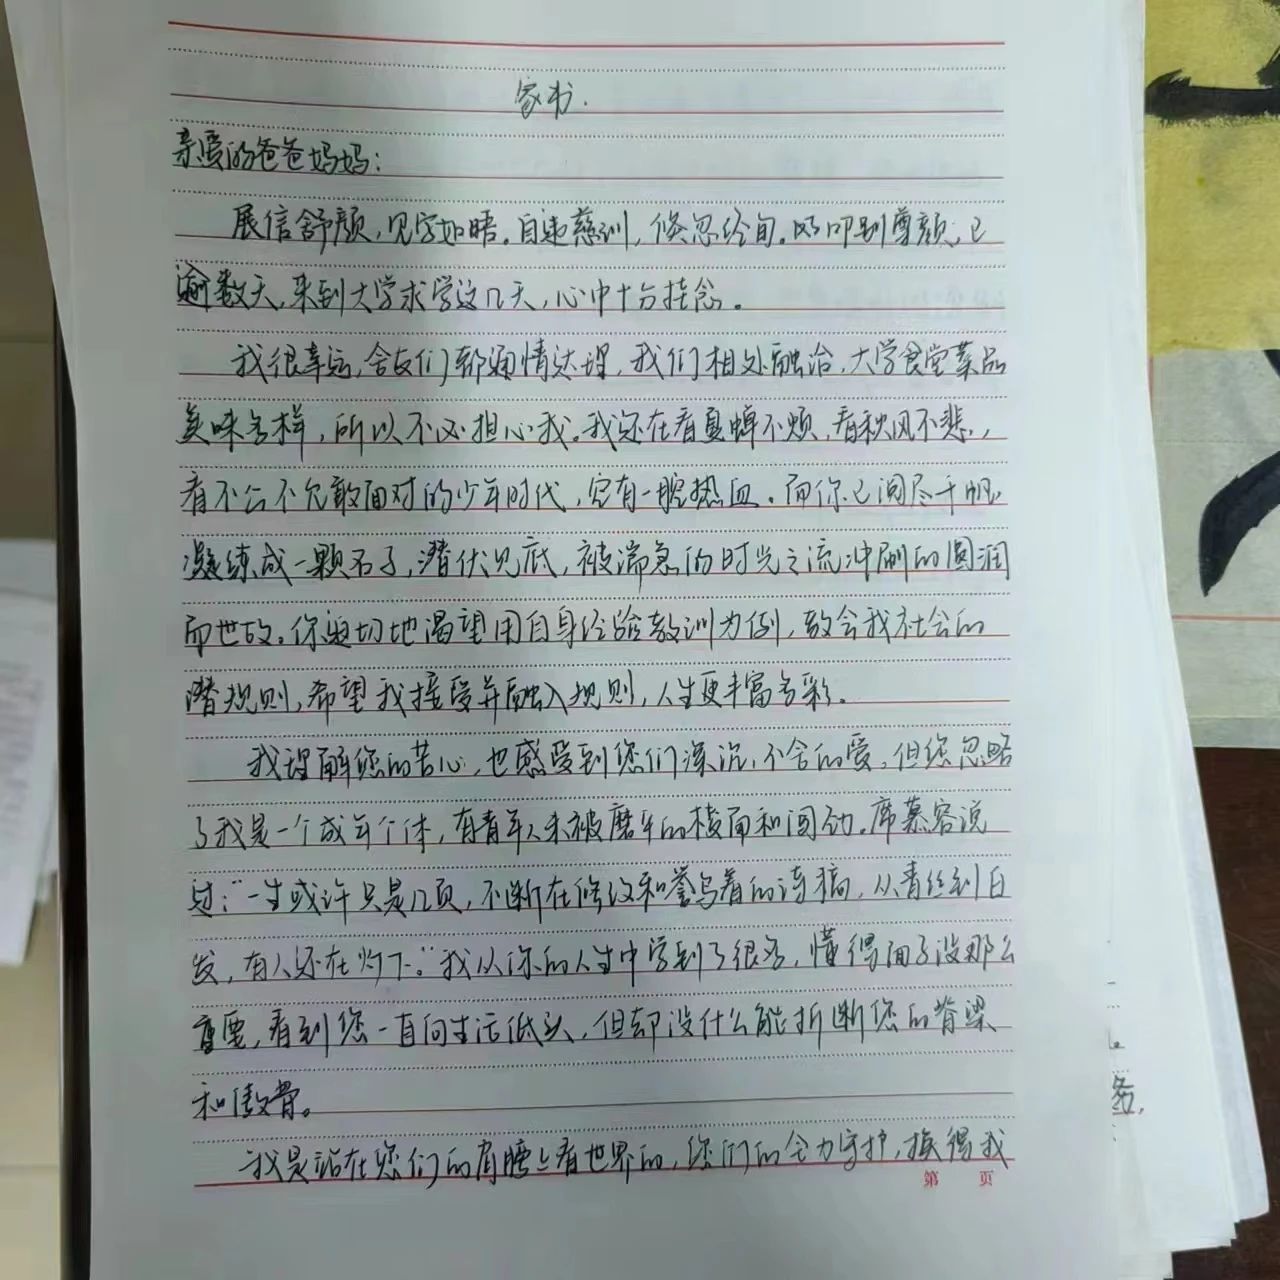 家书.
亲爱的爸爸妈妈：
展信舒颜，见字如晤。自违慈训，倏忽经旬。叩别尊颜，已
逾数天，来到大学求学这几天，心中十分挂念。
我很幸运，舍友们都通情达理，我们相处融洽，大学食堂菜品
美味多样，所以不必担心我。我还在看夏蝉不烦，看秋风不悲，
看不公不允敢面对的少年时代，空有一腔热血。而你已阅尽千帆，
凝练成一颗石子，潜伏见底，被湍急的时光之流冲刷的圆润
而世故。你迫切地渴望用自身经验教训为例，教会我社会的
潜规则，希望我接受并融入规则，人生更丰富多彩。
我理解您的苦心，也感受到您们深沉，不舍的爱。但您忽略
了我是一个成年个体，有青年人未被磨平的棱角和闯劲。席慕容说
过：“一生或许只是几页，不断在修改和誊写着的诗稿，从青丝到白
发，有人还在灼下。”我从你的人生中学到了很多，懂得面子没那么
重要，看到您一直向生活低头，但却没什么能折断您的脊梁
和傲骨。
我是站在您们的肩膀上看世界的，您们的全力守护，换得我
第 页
务，